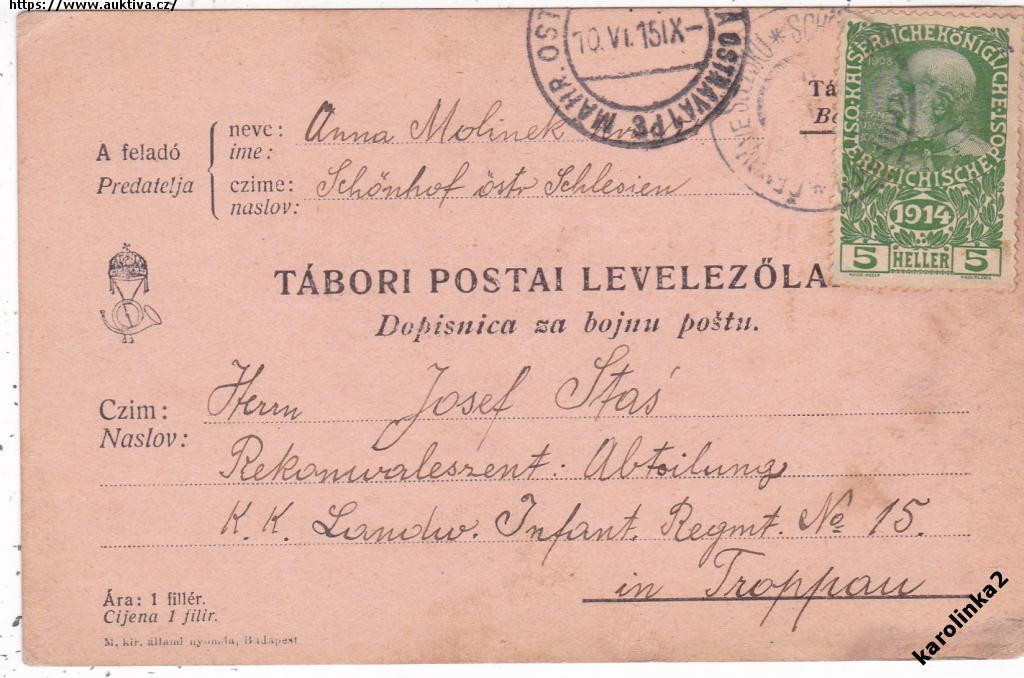 https://www.auktiva.cz/
A OSTRAVA 1 PE MÄHR. OST
10.VI.15IX-
* SCHÖ
Tá
KAISERLICHE KÖNIGLICHE ÖSTERREICHISCHE
1908
1914
5 HELLER 5
A feladó
Predatelja
neve:
ime:
Anna Molinek
czime:
naslov:
Schönhof östr Schlesien
TÁBORI POSTAI LEVELEZŐLA
Dopisnica za bojnu poštu.
Czim:
Naslov:
Herrn Josef Staś
Rekonvaleszent: Abteilung
K. K. Landw. Infant. Regmt. No 15.
in Troppau
Ára: 1 fillér.
Cijena 1 filir.
M. kir. állami nyomda, Budapest
karolinka2